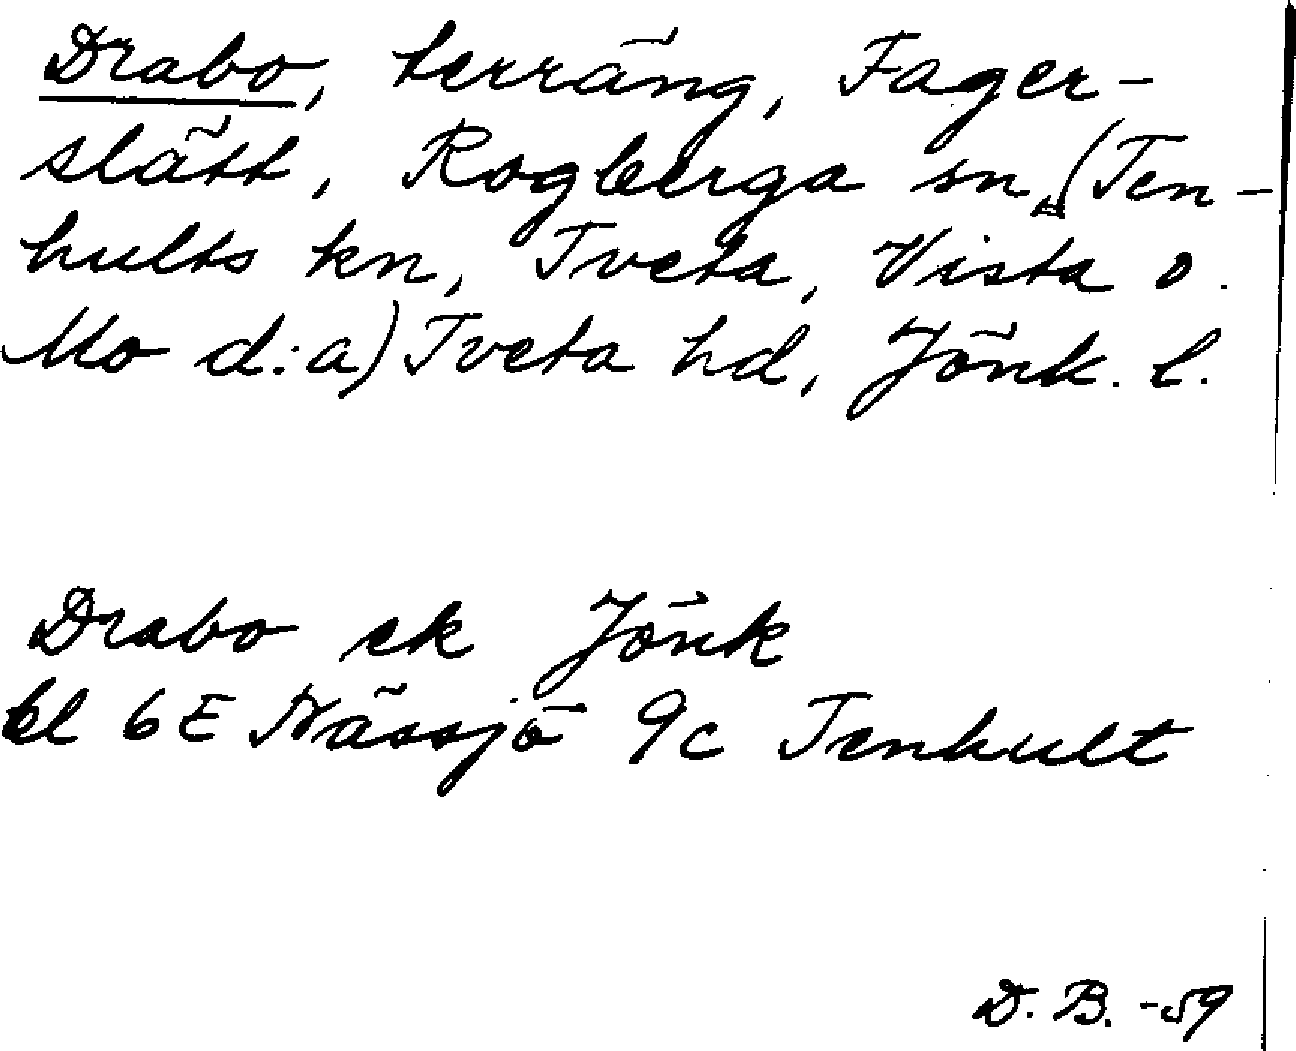 Drabo, terräng, Fager-
slätt, Rogberga sn (Ten-
hults kn, Tveta, Vista o.
Mo d:a) Tveta hd, Jönk. l.
Drabo ek Jönk
bl 6E Nässjö 9c Tenhult
D. B. -59